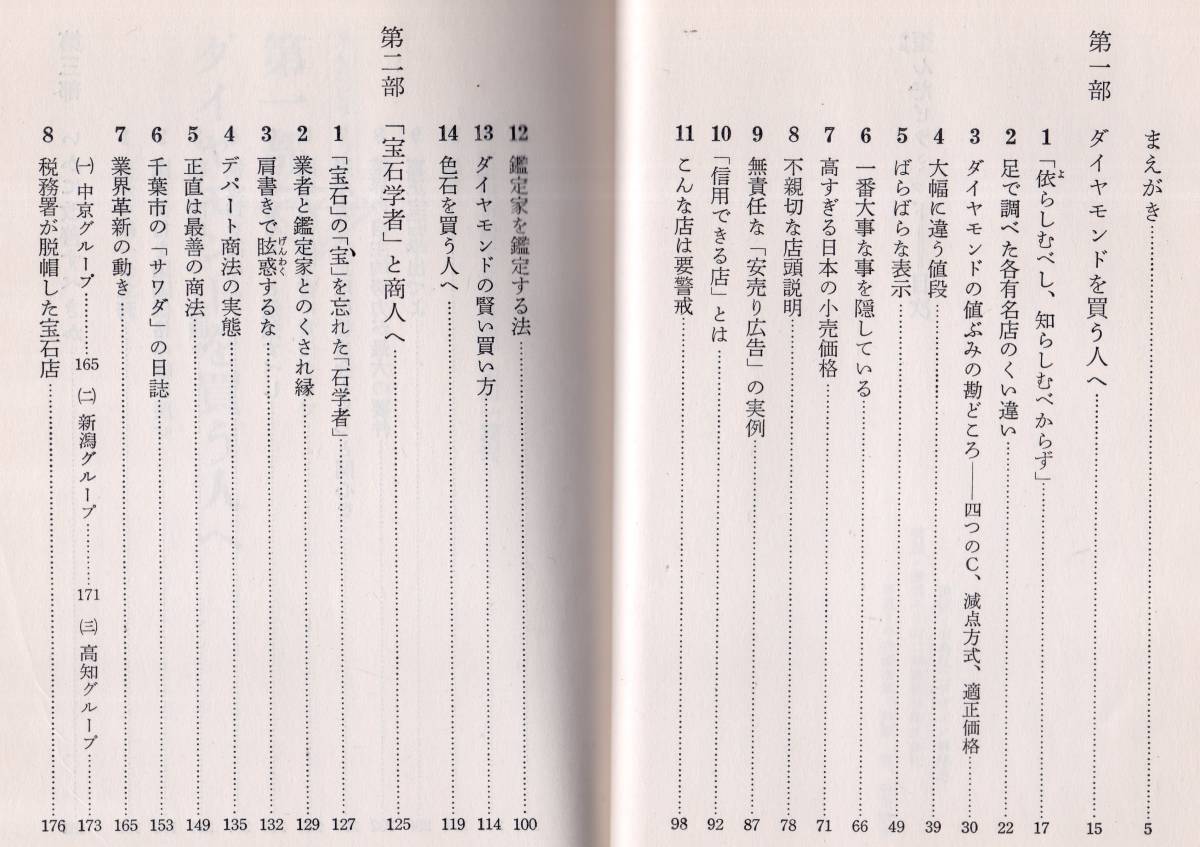 まえがき……………5
第一部　ダイヤモンドを買う人へ……………15
1　「依らしむべし、知らしむべからず」……………17
よ
2　足で調べた各有名店のくい違い……………22
3　ダイヤモンドの値ぶみの勘どころ——四つのC、減点方式、適正価格……………30
4　大幅に違う値段……………39
5　ばらばらな表示……………49
6　一番大事な事を隠している……………66
7　高すぎる日本の小売価格……………71
8　不親切な店頭説明……………78
9　無責任な「安売り広告」の実例……………87
10　「信用できる店」とは……………92
11　こんな店は要警戒……………98
12　鑑定家を鑑定する法……………100
13　ダイヤモンドの賢い買い方……………114
14　色石を買う人へ……………119
第二部　「宝石学者」と商人へ……………125
1　「宝石」の「宝」を忘れた「石学者」……………127
2　業者と鑑定家とのくされ縁……………129
3　肩書きで眩惑するな……………132
げんわく
4　デパート商法の実態……………135
5　正直は最善の商法……………149
6　千葉市の「サワダ」の日誌……………153
7　業界革新の動き……………165
㈠中京グループ………165　㈡新潟グループ………171　㈢高知グループ………173
8　税務署が脱帽した宝石店……………176